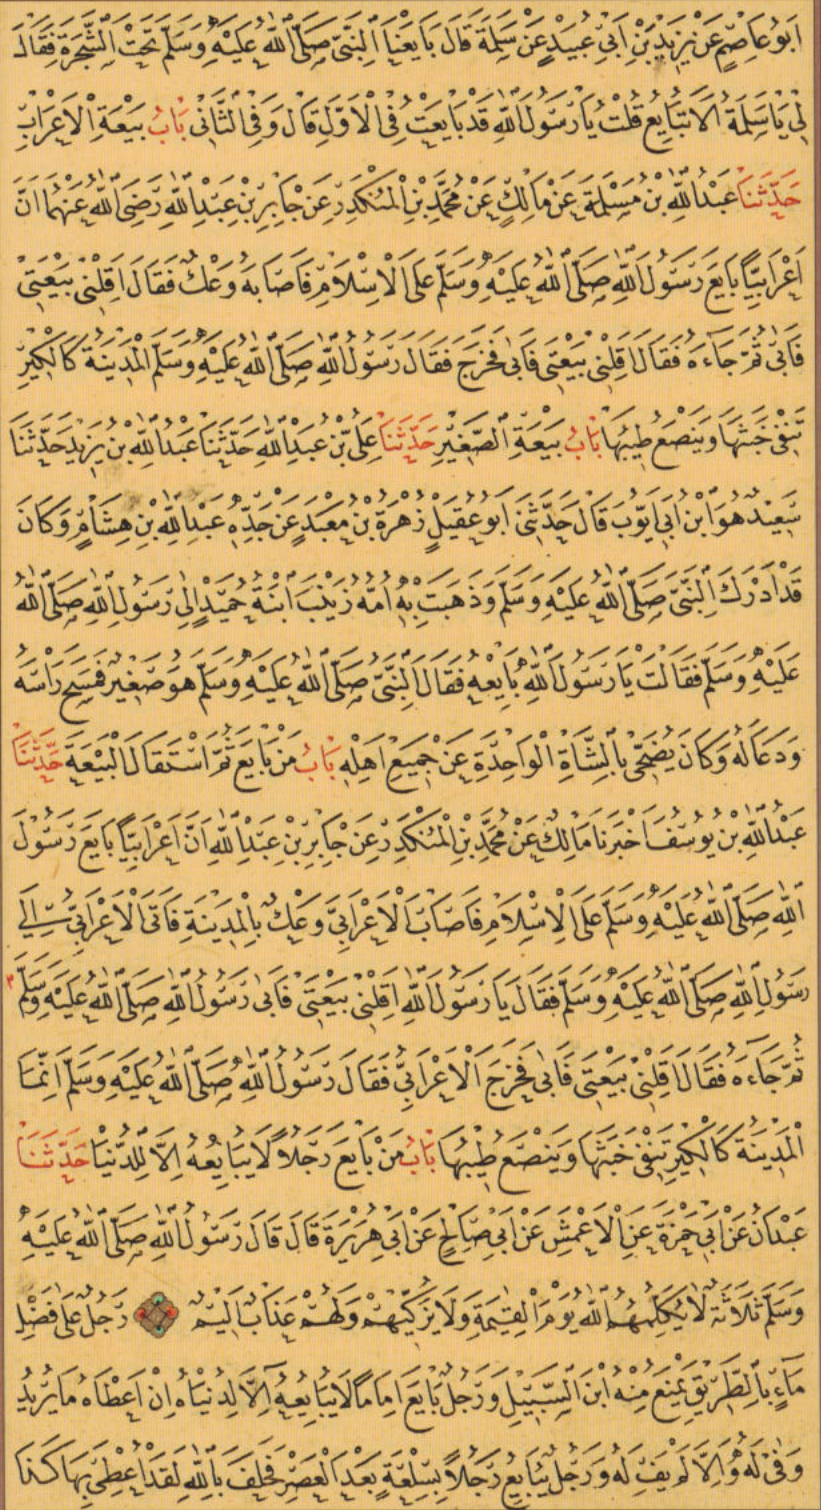 اَبُو عَاصِمٍ عَنْ يَزِيدَ بْنِ اَبِي عُبَيْدٍ عَنْ سَلِمَةَ قَالَ بَايَعْنَا النَّبِيَّ صَلَّى اللّٰهُ عَلَيْهِ وَسَلَّمَ تَحْتَ الشَّجَرَةِ فَقَالَ
لِي يَا سَلِمَةُ اَلَا تُبَايِعُ قُلْتُ يَا رَسُولَ اللّٰهِ قَدْ بَايَعْتُ فِي الْاَوَّلِ قَالَ وَفِي الثَّانِي بَابُ بَيْعَةِ الْاَعْرَابِ
حَدَّثَنَا عَبْدُ اللّٰهِ بْنُ مَسْلَمَةَ عَنْ مَالِكٍ عَنْ مُحَمَّدِ بْنِ الْمُنْكَدِرِ عَنْ جَابِرِ بْنِ عَبْدِ اللّٰهِ رَضِيَ اللّٰهُ عَنْهُمَا اَنَّ
اَعْرَابِيًّا بَايَعَ رَسُولَ اللّٰهِ صَلَّى اللّٰهُ عَلَيْهِ وَسَلَّمَ عَلَى الْاِسْلَامِ فَاَصَابَهُ وَعْكٌ فَقَالَ اَقِلْنِي بَيْعَتِي
فَاَبٰى ثُمَّ جَاءَهُ فَقَالَ اَقِلْنِي بَيْعَتِي فَاَبٰى فَخَرَجَ فَقَالَ رَسُولُ اللّٰهِ صَلَّى اللّٰهُ عَلَيْهِ وَسَلَّمَ الْمَدِينَةُ كَالْكِيرِ
تَنْفِي خَبَثَهَا وَيَنْصَعُ طِيبُهَا بَابُ بَيْعَةِ الصَّغِيرِ حَدَّثَنَا عَلِيُّ بْنُ عَبْدِ اللّٰهِ حَدَّثَنَا عَبْدُ اللّٰهِ بْنُ يَزِيدَ حَدَّثَنَا
سَعِيدٌ هُوَ ابْنُ اَبِي اَيُّوبَ قَالَ حَدَّثَنِي اَبُو عَقِيلٍ زُهْرَةُ بْنُ مَعْبَدٍ عَنْ جَدِّهِ عَبْدِ اللّٰهِ بْنِ هِشَامٍ وَكَانَ
قَدْ اَدْرَكَ النَّبِيَّ صَلَّى اللّٰهُ عَلَيْهِ وَسَلَّمَ وَذَهَبَتْ بِهِ اُمُّهُ زَيْنَبُ ابْنَةُ حُمَيْدٍ اِلٰى رَسُولِ اللّٰهِ صَلَّى اللّٰهُ
عَلَيْهِ وَسَلَّمَ فَقَالَتْ يَا رَسُولَ اللّٰهِ بَايِعْهُ فَقَالَ النَّبِيُّ صَلَّى اللّٰهُ عَلَيْهِ وَسَلَّمَ هُوَ صَغِيرٌ فَمَسَحَ رَاْسَهُ
وَدَعَا لَهُ وَكَانَ يُضَحِّي بِالشَّاةِ الْوَاحِدَةِ عَنْ جَمِيعِ اَهْلِهِ بَابُ مَنْ بَايَعَ ثُمَّ اسْتَقَالَ الْبَيْعَةَ حَدَّثَنَا
عَبْدُ اللّٰهِ بْنُ يُوسُفَ اَخْبَرَنَا مَالِكٌ عَنْ مُحَمَّدِ بْنِ الْمُنْكَدِرِ عَنْ جَابِرِ بْنِ عَبْدِ اللّٰهِ اَنَّ اَعْرَابِيًّا بَايَعَ رَسُولَ
اللّٰهِ صَلَّى اللّٰهُ عَلَيْهِ وَسَلَّمَ عَلَى الْاِسْلَامِ فَاَصَابَ الْاَعْرَابِيَّ وَعْكٌ بِالْمَدِينَةِ فَاَتَى الْاَعْرَابِيُّ اِلٰى
رَسُولِ اللّٰهِ صَلَّى اللّٰهُ عَلَيْهِ وَسَلَّمَ فَقَالَ يَا رَسُولَ اللّٰهِ اَقِلْنِي بَيْعَتِي فَاَبٰى رَسُولُ اللّٰهِ صَلَّى اللّٰهُ عَلَيْهِ وَسَلَّمَ ٣
ثُمَّ جَاءَهُ فَقَالَ اَقِلْنِي بَيْعَتِي فَاَبٰى فَخَرَجَ الْاَعْرَابِيُّ فَقَالَ رَسُولُ اللّٰهِ صَلَّى اللّٰهُ عَلَيْهِ وَسَلَّمَ اِنَّمَا
الْمَدِينَةُ كَالْكِيرِ تَنْفِي خَبَثَهَا وَيَنْصَعُ طِيبُهَا بَابُ مَنْ بَايَعَ رَجُلًا لَا يُبَايِعُهُ اِلَّا لِلدُّنْيَا حَدَّثَنَا
عَبْدَانُ عَنْ اَبِي حَمْزَةَ عَنِ الْاَعْمَشِ عَنْ اَبِي صَالِحٍ عَنْ اَبِي هُرَيْرَةَ قَالَ قَالَ رَسُولُ اللّٰهِ صَلَّى اللّٰهُ عَلَيْهِ
وَسَلَّمَ ثَلَاثَةٌ لَا يُكَلِّمُهُمُ اللّٰهُ يَوْمَ الْقِيٰمَةِ وَلَا يُزَكِّيهِمْ وَلَهُمْ عَذَابٌ اَلِيمٌ رَجُلٌ عَلٰى فَضْلِ
مَاءٍ بِالطَّرِيقِ يَمْنَعُ مِنْهُ ابْنَ السَّبِيلِ وَرَجُلٌ بَايَعَ اِمَامًا لَا يُبَايِعُهُ اِلَّا لِدُنْيَاهُ اِنْ اَعْطَاهُ مَا يُرِيدُ
وَفٰى لَهُ وَاِلَّا لَمْ يَفِ لَهُ وَرَجُلٌ يُبَايِعُ رَجُلًا بِسِلْعَةٍ بَعْدَ الْعَصْرِ فَحَلَفَ بِاللّٰهِ لَقَدْ اُعْطِيَ بِهَا كَذَا